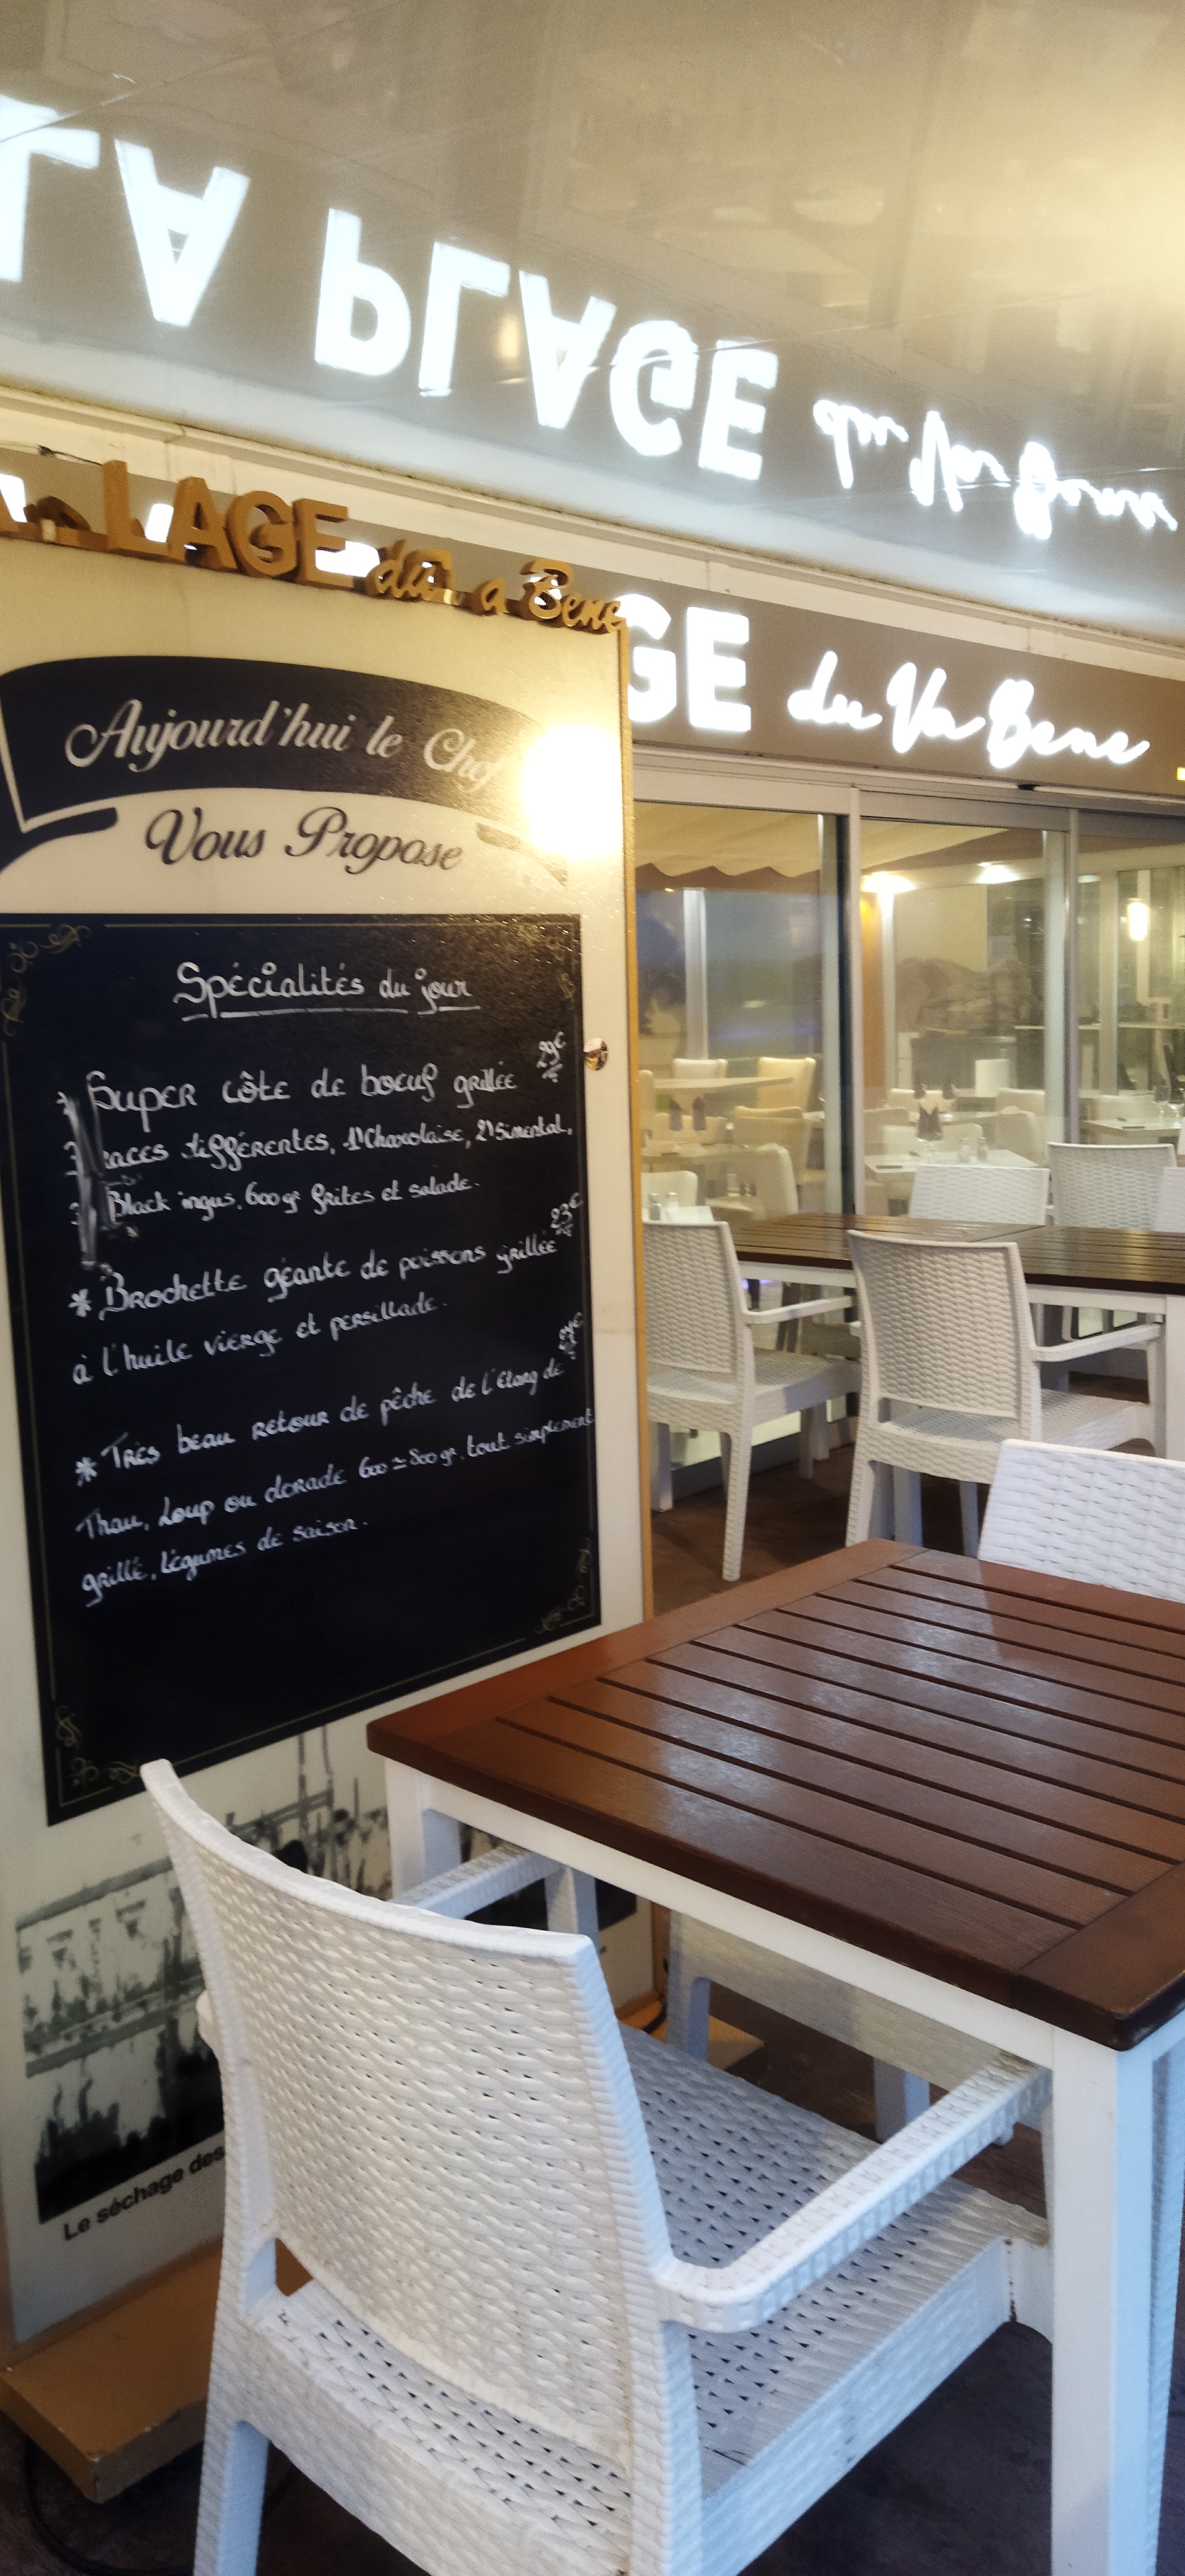 LA PLAGE du Va Bene
LAGE du a Bene
GE du Va Bene
Aujourd'hui le Chef
Vous Propose
Spécialités du jour
* Super côte de boeuf grillée 29€
3 races différentes, 1) Charolaise, 2) Simental,
3) Black ingus. 600 gr frites et salade.
* Brochette géante de poissons grillée 23€
à l'huile vierge et persillade.
* Très beau retour de pêche de l'étang de
Thau, Loup ou dorade 600 ≃ 800 gr. tout simplement
grillé, légumes de saison.
Le séchage des